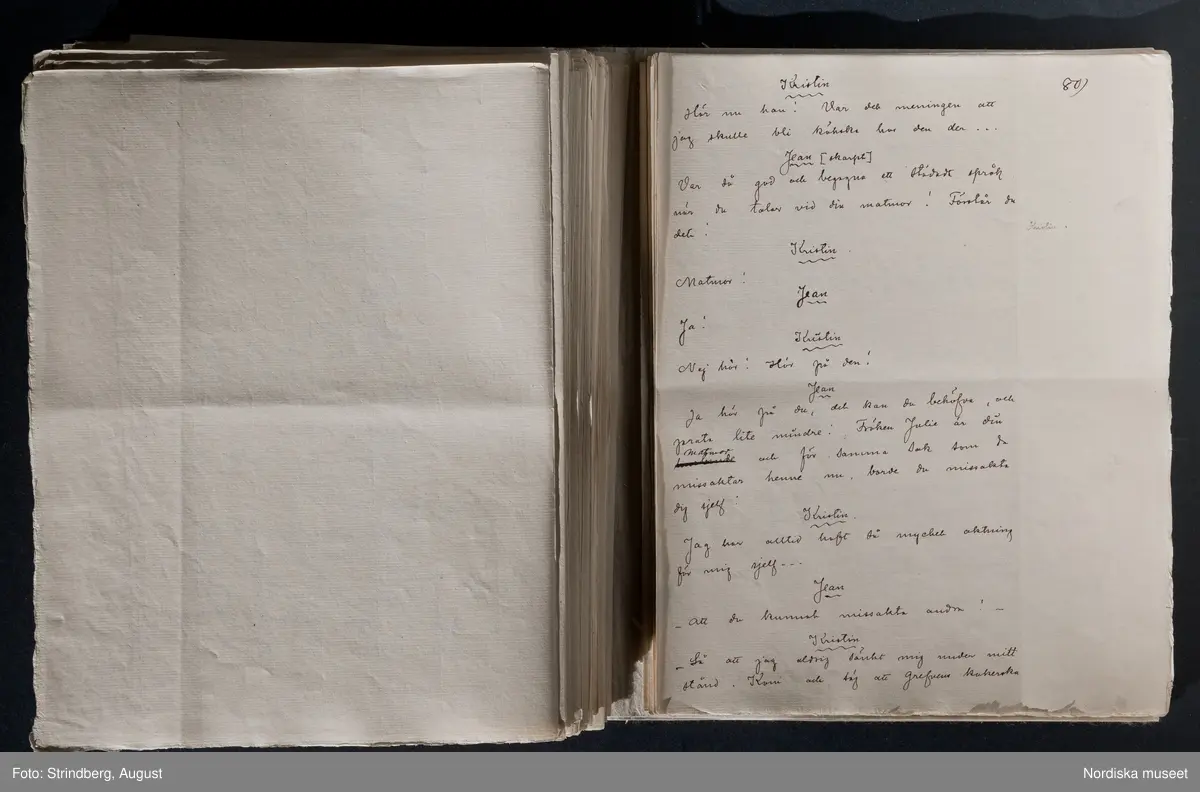 80)
Kristin
Hör nu han! Var det meningen att
jag skulle bli kökska hos den der ...
Jean [skarpt]
Var så god och begagna ett städadt språk
när du talar vid din matmor! Förstår du
det!
Kristin.
Kristin.
Matmor!
Jean
Ja!
Kristin
Nej hör! Hör på den!
Jean
Ja hör på du, det kan du behöfva, och
prata lite mindre! Fröken Julie är din
matmor och för samma sak som du
missaktar henne nu, borde du missakta
dig sjelf!
Kristin.
Jag har alltid haft så mycket aktning
för mig sjelf ---
Jean
– Att du kunnat missakta andra! –
Kristin
– Så att jag aldrig sänkt mig under mitt
stånd. Kom och säg att Grefvens kokerska
Foto: Strindberg, August
Nordiska museet